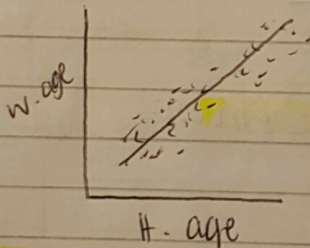 W. age
H. age